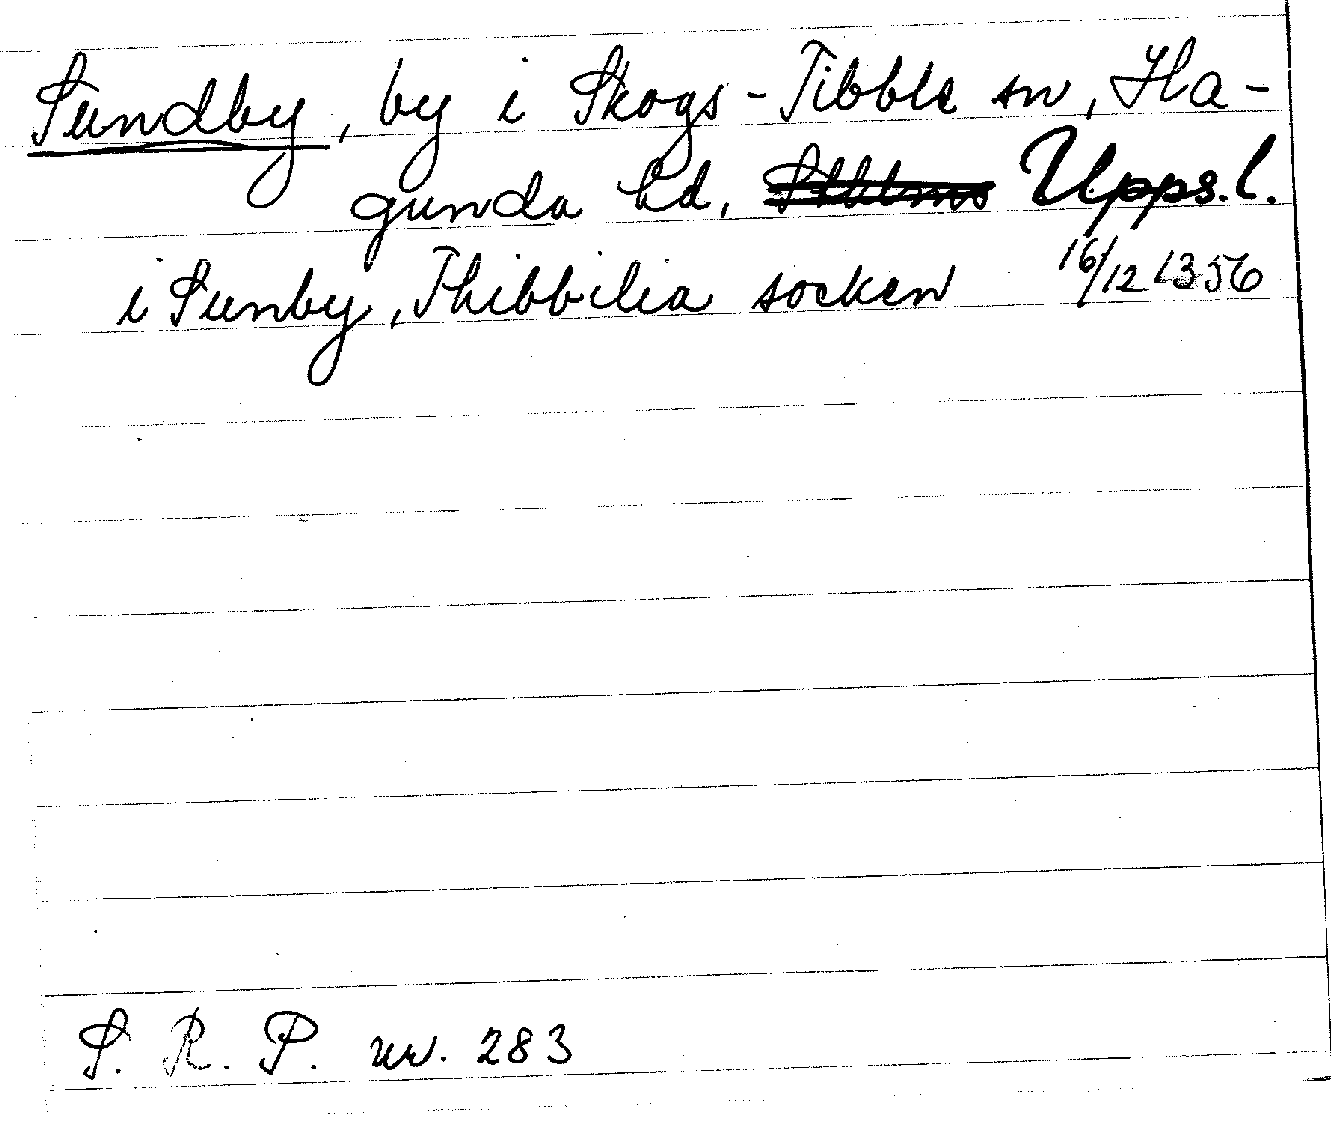 Sundby, by i Skogs-Tibble sn, Ha-
gunda hd, Upps.l.
i Sunby, Thibbilia socken 16/12 1356
S. R. P. nr. 283